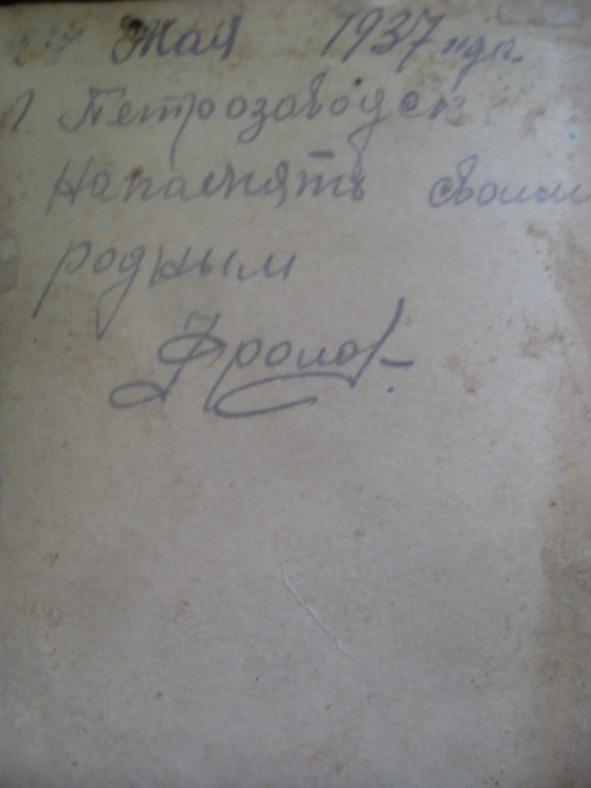 Мая 1937
Петрозаводск
На память своим
родным
Фролов